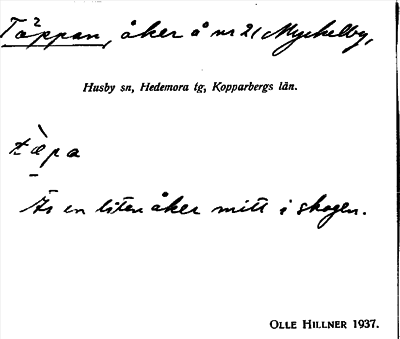 Täppan, åker å nr 21 Myckelby,
Husby sn, Hedemora tg, Kopparbergs län.
tæ̀pa
Är en liten åker mitt i skogen.
OLLE HILLNER 1937.